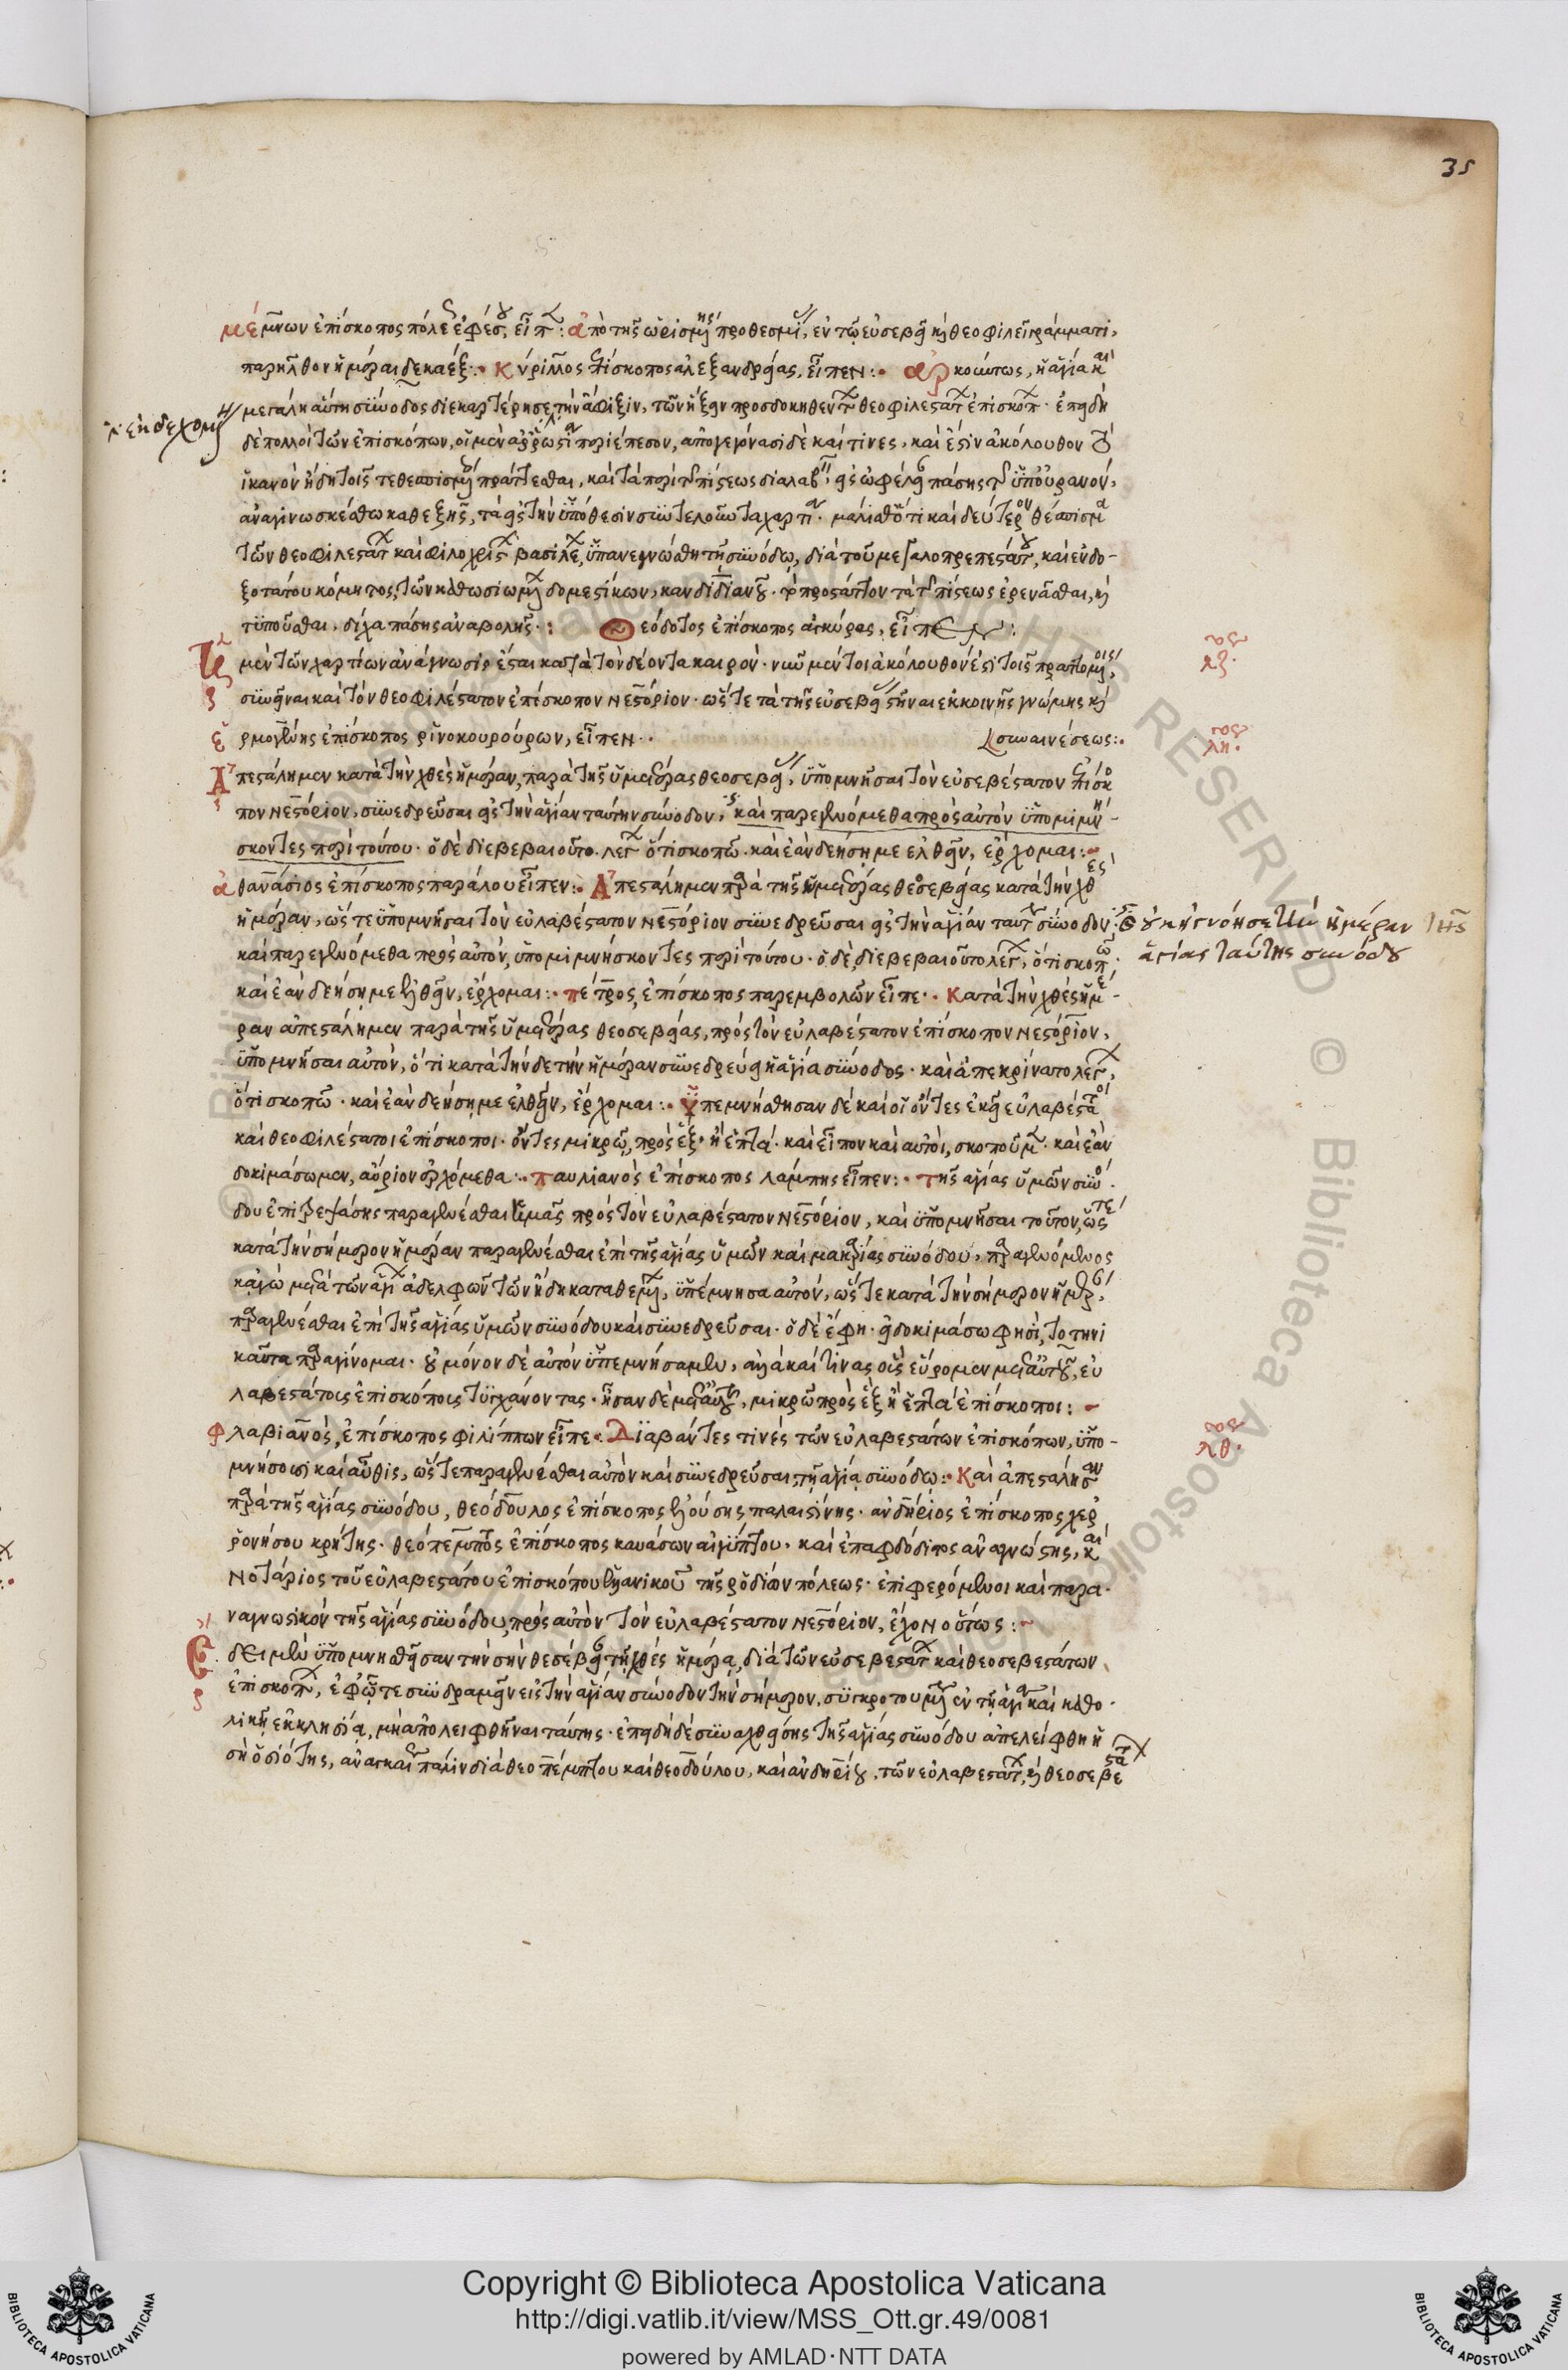 35
μέμνων ἐπίσκοπος πόλε ἐφέσου, εἶπ: ἀπὸ τῆς ὡρισμένης προθεσμί, ἐν τῷ εὐσεβεῖ καὶ θεοφιλεῖ γράμματι,
παρῆλθον ἡμέραι δεκαέξ: κύριλλος ἐπίσκοπος ἀλεξανδρείας, εἶπεν: ἀρκούντως, ἡ ἁγία καὶ
μεγάλη αὕτη σύνοδος διεκαρτέρησε τὴν ἄφιξιν, τῶν ἥξειν προσδοκηθέντ θεοφιλεστάτ ἐπισκόπ. ἐπειδὴ
δὲ πολλοὶ τῶν ἐπισκόπων, οἱ μὲν ἀρρωστία περιέπεσον, ἀπογεγόνασι δὲ καί τινες, καὶ ἔστιν ἀκόλουθον
ἱκανὸν ἤδη τοῖς τεθεσπισμένοις πράττεσθαι, καὶ τὰ περὶ τ πίστεως διαλαβεῖν, εἰς ὠφέλειαν πάσης τ ὑπ' οὐρανόν,
ἀναγινωσκέσθω καθεξῆς, τὰ εἰς τὴν ὑπόθεσιν συντελοῦντα χαρτία. μάλισθ' ὅτι καὶ δεύτερον θέσπισμα
τῶν θεοφιλεστάτ καὶ φιλοχρίστ βασιλέ, ὑπανεγνώσθη τῇ συνόδῳ, διὰ τοῦ μεγαλοπρεπεστάτου, καὶ ἐνδο-
ξοτάτου κόμητος, τῶν καθωσιωμέν δομεστίκων, κανδιδιανοῦ. προστάττον τὰ τ πίστεως ἐρευνᾶσθαι, καὶ
τυποῦσθαι, δίχα πάσης ἀναβολῆς: θεόδοτος ἐπίσκοπος ἀγκύρας, εἶπεν:
μὲν τῶν χαρτίων ἀνάγνωσις ἔσται κατὰ τὸν δέοντα καιρόν. νῦν μέντοι ἀκόλουθόν ἐστι τοῖς πραττομένοις,
συνεῖναι καὶ τὸν θεοφιλέστατον ἐπίσκοπον νεστόριον. ὥστε τὰ τῆς εὐσεβεί στῆναι ἐκ κοινῆς γνώμης καὶ
ἑρμογένης ἐπίσκοπος ῥινοκουρούρων, εἶπεν. συναινέσεως:
Ἀπεστάλημεν κατὰ τὴν χθὲς ἡμέραν, παρὰ τῆς ὑμετέρας θεοσεβεί, ὑπομνῆσαι τὸν εὐσεβέστατον ἐπίσκο
πον νεστόριον, συνεδρεῦσαι εἰς τὴν ἁγίαν ταύτην σύνοδον, καὶ παρεγενόμεθα πρὸς αὐτὸν ὑπομιμνή-
σκοντες περὶ τούτου. ὁ δὲ διεβεβαιοῦτο λέγ ὅτι σκοπῶ. καὶ ἐὰν δεήσῃ με ἐλθεῖν, ἔρχομαι:
ἀθανάσιος ἐπίσκοπος παράλου εἶπεν: Ἀπεστάλημεν παρὰ τῆς ὑμετέρας θεοσεβείας κατὰ τὴν χθὲς
ἡμέραν, ὥστε ὑπομνῆσαι τὸν εὐλαβέστατον νεστόριον συνεδρεῦσαι εἰς τὴν ἁγίαν ταύτ σύνοδον,
καὶ παρεγενόμεθα πρὸς αὐτόν, ὑπομιμνήσκοντες περὶ τούτου. ὁ δὲ, διεβεβαιοῦτο λέγ, ὅτι σκοπῶ,
καὶ ἐὰν δεήσῃ με ἐλθεῖν, ἔρχομαι: πέτρος, ἐπίσκοπος παρεμβολῶν εἶπε. Κατὰ τὴν χθὲς ἡμέ-
ραν ἀπεστάλημεν παρὰ τῆς ὑμετέρας θεοσεβείας, πρὸς τὸν εὐλαβέστατον ἐπίσκοπον νεστόριον,
ὑπομνῆσαι αὐτόν, ὅτι κατὰ τήνδε τὴν ἡμέραν συνεδρεύει ἡ ἁγία σύνοδος. καὶ ἀπεκρίνατο λέγ,
ὅτι σκοπῶ. καὶ ἐὰν δεήσῃ με ἐλθεῖν, ἔρχομαι: Ὑπεμνήσθησαν δὲ καὶ οἱ ὄντες ἐκεῖ εὐλαβέστατοι
καὶ θεοφιλέστατοι ἐπίσκοποι. ὄντες μικρῷ, πρὸς ἓξ ἢ ἑπτά. καὶ εἶπον καὶ αὐτοί, σκοποῦμ. καὶ ἐὰν
δοκιμάσωμεν, αὔριον ἐρχόμεθα. παυλιανὸς ἐπίσκοπος λάμπης εἶπεν: τῆς ἁγίας ὑμῶν συνό
δου ἐπιτρεψάσης παραγενέσθαι ἡμᾶς πρὸς τὸν εὐλαβέστατον νεστόριον, καὶ ὑπομνῆσαι τοῦτον, ὥστε
κατὰ τὴν σήμερον ἡμέραν παραγενέσθαι ἐπὶ τῆς ἁγίας ὑμῶν καὶ μακαρίας συνόδου, παραγενόμενος
κἀγὼ μετὰ τῶν ἁγί ἀδελφῶν τῶν ἤδη καταθεμέν, ὑπέμνησα αὐτόν, ὥστε κατὰ τὴν σήμερον ἡμέραν,
παραγενέσθαι ἐπὶ τῆς ἁγίας ὑμῶν συνόδου καὶ συνεδρεῦσαι. ὁ δὲ ἔφη. εἰ δοκιμάσω φησὶ, τοτηνι
καῦτα παραγίνομαι. οὐ μόνον δὲ αὐτὸν ὑπεμνήσαμεν, ἀλλὰ καὶ τινας οἷς εὕρομεν μετ' αὐτοῦ, εὐ
λαβεστάτοις ἐπισκόποις τυγχάνοντας. ἦσαν δὲ μετ' αὐτοῦ, μικρῷ πρὸς ἓξ ἢ ἑπτὰ ἐπίσκοποι:
φλαβιανὸς, ἐπίσκοπος φιλίππων εἶπε. Διαβάντες τινὲς τῶν εὐλαβεστάτων ἐπισκόπων, ὑπο-
μνήσωσι καὶ αὖθις, ὥστε παραγενέσθαι αὐτὸν καὶ συνεδρεῦσαι τῇ ἁγίᾳ συνόδῳ: Καὶ ἀπεστάλησαν
παρὰ τῆς ἁγίας συνόδου, θεόδουλος ἐπίσκοπος ἐλούσης παλαιστίνης. ἀνδήριος ἐπίσκοπος χερ
ρονήσου κρήτης. θεόπεμπτος ἐπίσκοπος καυάσων αἰγύπτου. καὶ ἐπαφρόδιτος ἀναγνώστης, καὶ
νοτάριος τοῦ εὐλαβεστάτου ἐπισκόπου ἑλλανικοῦ τῆς ῥοδίων πόλεως. ἐπιφερόμενοι καὶ παρα
ναγνωστικὸν τῆς ἁγίας συνόδου, πρὸς αὐτὸν τὸν εὐλαβέστατον νεστόριον, ἔχον οὕτως:
Ἔδει μὲν ὑπομνησθεῖσαν τὴν σὴν θεοσέβειαν τῇ χθὲς ἡμέρᾳ, διὰ τῶν εὐσεβεστάτ καὶ θεοσεβεστάτων
ἐπισκόπ, ἐφ' ᾧ τε συνδραμεῖν εἰς τὴν ἁγίαν σύνοδον τὴν σήμερον, συγκροτουμέν ἐν τῇ ἁγίᾳ καὶ καθο
λικῇ ἐκκλησίᾳ, μὴ ἀπολειφθῆναι ταύτης. ἐπειδὴ δὲ συναχθείσης τῆς ἁγίας συνόδου ἀπελείφθη ἡ
σὴ ὁσιότης, ἀναγκαί πάλιν διὰ θεοπέμπτου καὶ θεοδούλου, καὶ ἀνδηρίου, τῶν εὐλαβεστάτ, καὶ θεοσεβεστάτ
ἐνδεχομένη
οὐκ ἠγνόησε τὴν ἡμέραν τῆς
ἁγίας ταύτης συνόδου
λζ.
λη.
λθ.
Copyright © Biblioteca Apostolica Vaticana
http://digi.vatlib.it/view/MSS_Ott.gr.49/0081
powered by AMLAD·NTT DATA
BIBLIOTECA APOSTOLICA VATICANA
BIBLIOTECA APOSTOLICA VATICANA